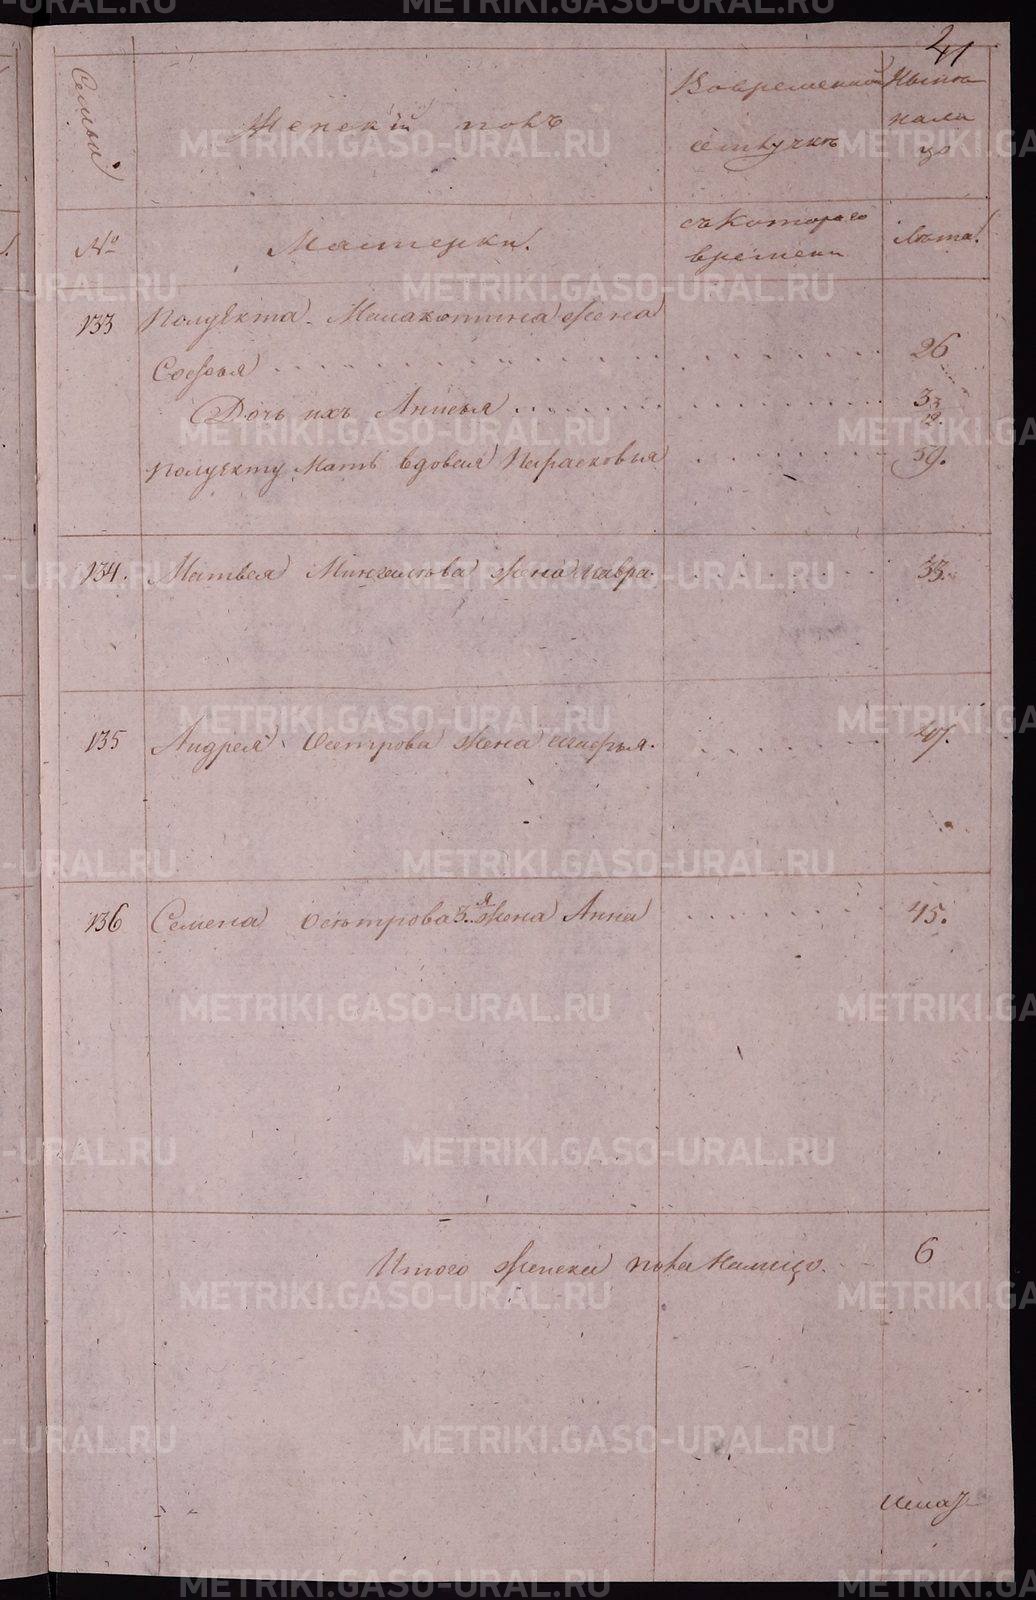 41
Семьи.
Женскій полъ
Вовременной отлучкѣ
Нынѣ налицо
№
Мастерки.
съ котораго времени
Лѣта.
133 Полуекта Малахотина жена
Софья 26
Дочь ихъ Анисья 3 3/12.
Полуекту Мать вдовая Парасковья 59.
134. Матвея Мингалева жена Мавра. 33.
135 Андрея Осетрова жена Марья. 47.
136 Семена Осетрова 3.я жена Анна 45.
Итого женска пола Налицо. 6
METRIKI.GASO-URAL.RU